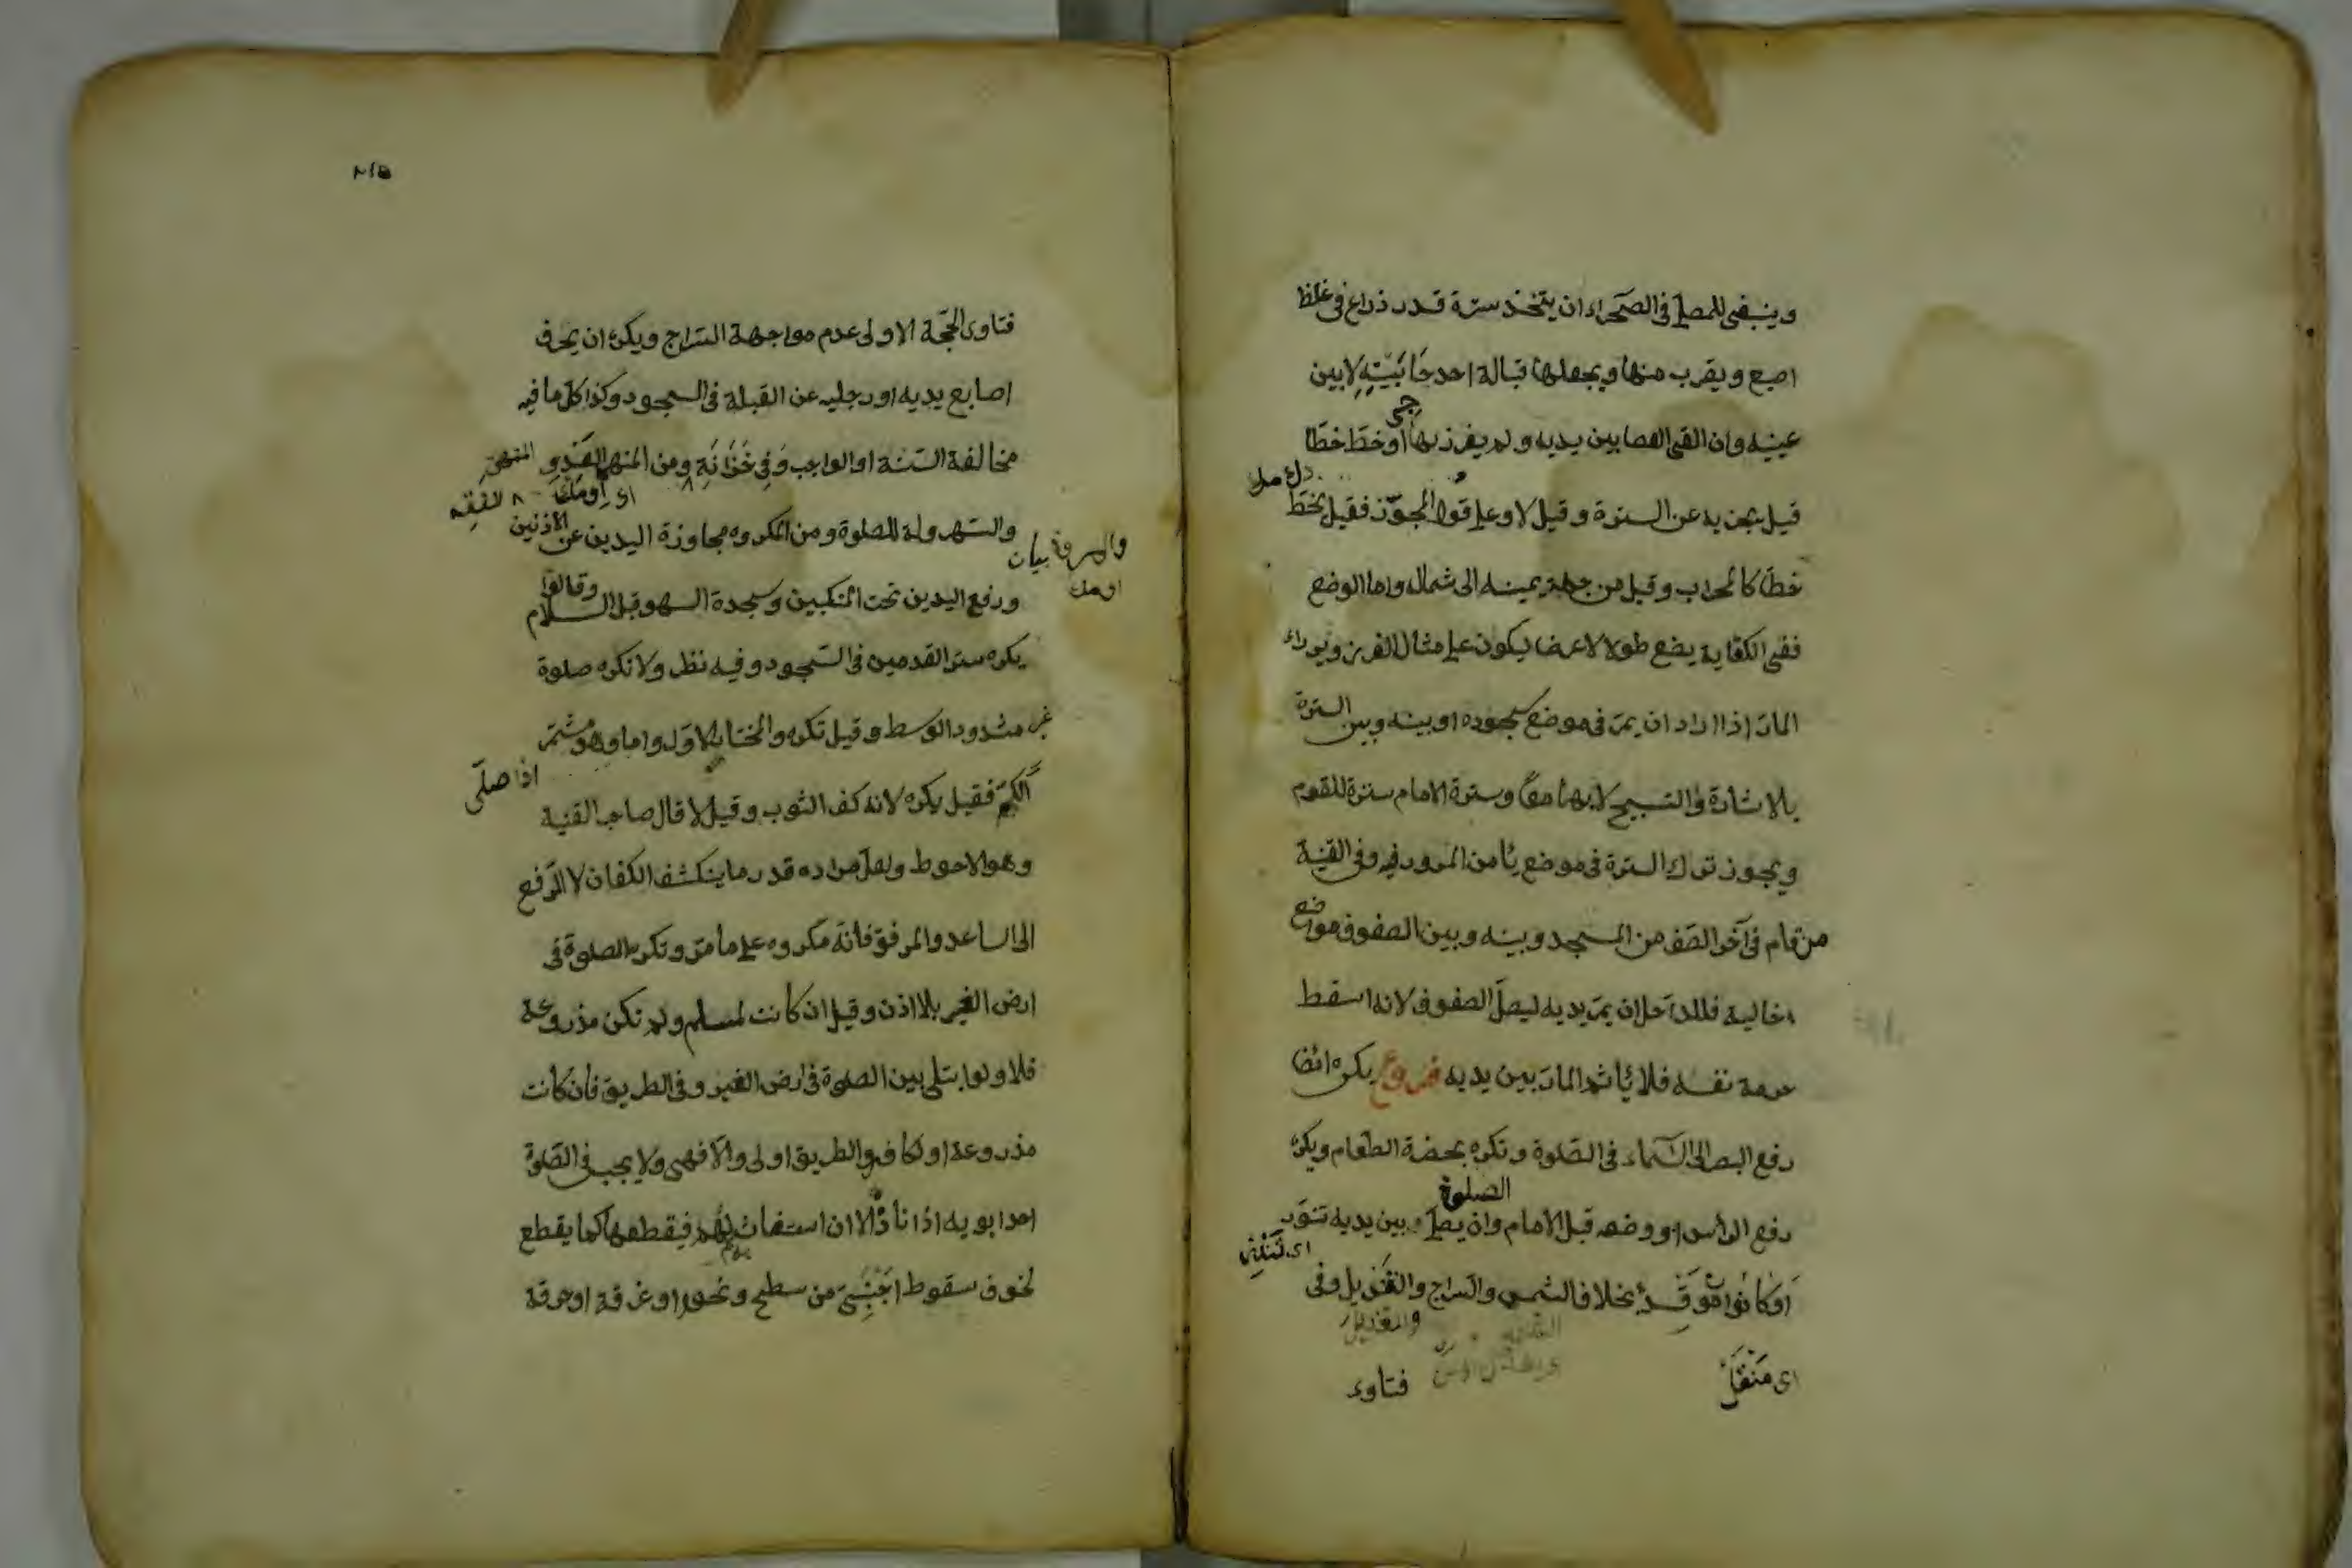 وينبغي للمصلي في الصحراء ان يتخذ سترة قدر ذراع في غلظ
اصبع ويقرب منها ويجعلها قبالة احد حَاجبَيْهِ لا بين
عينيه وان القى العصا بين يديه ولم يغرزها او خطّ خطّا
قيل يجزيه عن السترة وقيل لا وعلى قول المجوّز فقيل يخطّ
خطّا كالمحراب وقيل من جهة يمينه الى شماله واما الوضع
ففي الكفاية يضع طولا لا عرضا ليكون على مثال الغرز ويدراء
المارّ اذا اراد ان يمرّ في موضع سجوده او بينه وبين السترة
بالاشارة والتسبيح لا بهما معًا وسترة الامام سترة للقوم
ويجوز ترك السترة في موضع يأمن المرور فيه وفي القنية
من قام في آخر الصّف من المسجد وبينه وبين الصفوف مواضع
خالية فللداخل ان يمرّ يديه ليصل الصفوف لانه اسقط
حرمة نفسه فلا يأثم المارّ بين يديه فروع يكره ايضا
رفع البصر الى السّماء في الصّلوة وتكره بحضة الطعام ويكره
الصلوة
رفع الرأس او وضعه قبل الامام وان يصلّي وبين يديه تنّور
او كانون موقد بخلاف الشمس والسّراج والقنديل وفي
والقنديل
اى منقل
فتاوى
٢١٥
فتاوى الحجّة الاولى عدم مواجهة السّراج ويكره ان يحرف
اصابع يديه او رجليه عن القبلة في السجود وكذا كل ما فيه
مخالفة السّنة او الواجب وَفِي خَزَانَةِ ومن المنهى
الفقه
والهرولة للصلوة ومن المكروه مجاوزة اليدين عن الاذنين
ورفع اليدين تحت المنكبين وسجدة السهو قبل السلام وقالوا
يكره ستر القدمين في السّجود وفيه نظر ولا تكره صلوة
غير مشدود الوسط وقيل تكره والمختار الاوّل واما وهو مشمّر
اذا صلّى
الكمّ فقيل يكره لانه كف الثوب وقيل لا قال صاحب القنية
وهو الاحوط ولعلّ مراده قدر ما ينكشف الكفان لا الرّفع
الى الساعد والمرفق فانّه مكروه على ما مرّ وتكره الصلوة في
ارض الغير بلا اذن وقيل ان كانت لمسلم ولم تكن مزروعة
فلا ولو ابتلى بين الصلوة في ارض الغير وفي الطريق فان كانت
مذروعة او لكافر فالطريق اولى والّا فهى ولا يجب في الصّلوة
احد ابويه اذا ناداه الا ان استغاث لمهم فيقطعها كما يقطع
لخوف سقوط اجنبىّ من سطح ونحوه او غرقه او حرقه